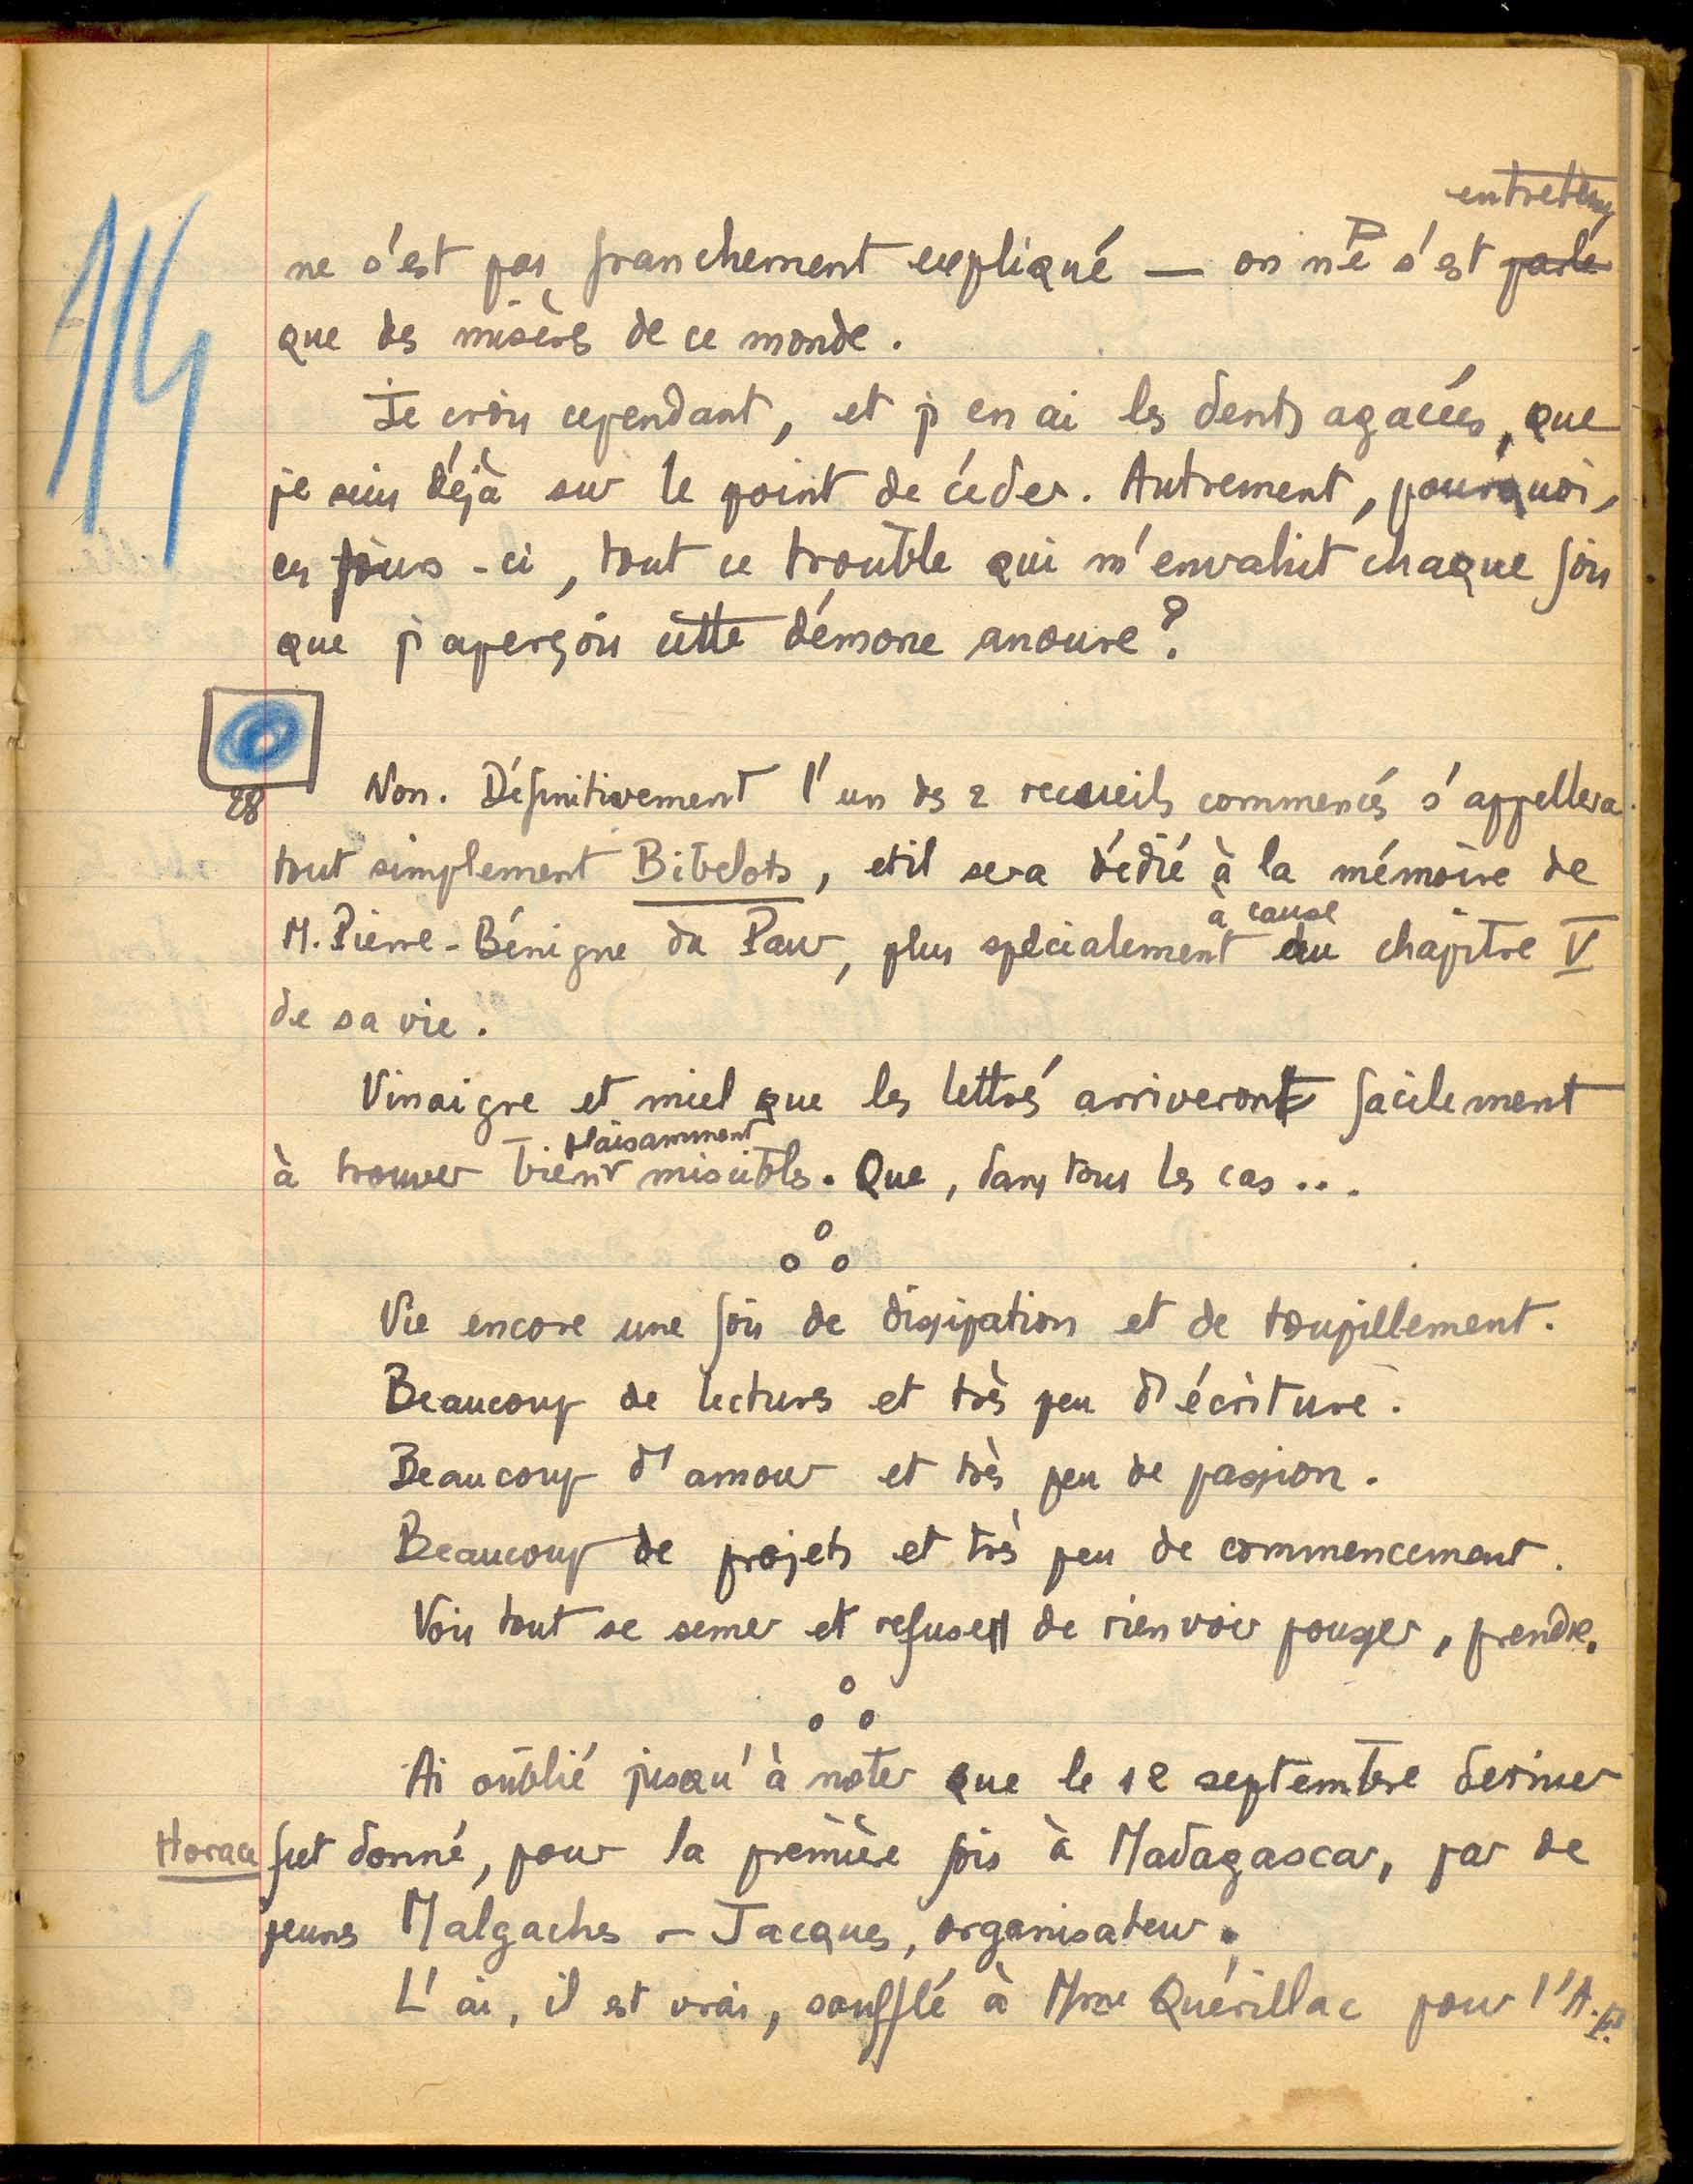 114
entretenu
ne s'est pas franchement expliqué — on ne s'est parlé
que des misères de ce monde.
Je crois cependant, et j'en ai les dents agacées, que
je suis déjà sur le point de céder. Autrement, pourquoi,
ces jours-ci, tout ce trouble qui m'envahit chaque fois
que j'aperçois cette démone anoure?
28 Non. Définitivement l'un des 2 recueils commencés s'appellera
tout simplement Bibelots, et il sera dédié à la mémoire de
à cause
M. Pierre-Bénigne du Paur, plus spécialement du chapitre V
de sa vie.
Vinaigre et miel que les lettrés arriveront facilement
plaisamment
à trouver bien miscibles. Que, dans tous les cas...
Vie encore une fois de dissipation et de toupillement.
Beaucoup de lectures et très peu d'écriture.
Beaucoup d'amour et très peu de passion.
Beaucoup de projets et très peu de commencement.
Voir tout se semer et refuser de rien voir pousser, prendre.
Ai oublié jusqu'à noter que le 12 septembre dernier
Horace fut donné, pour la première fois à Madagascar, par de
jeunes Malgaches – Jacques, organisateur.
L'ai, il est vrai, soufflé à Mme Quérillac pour l'A.P.